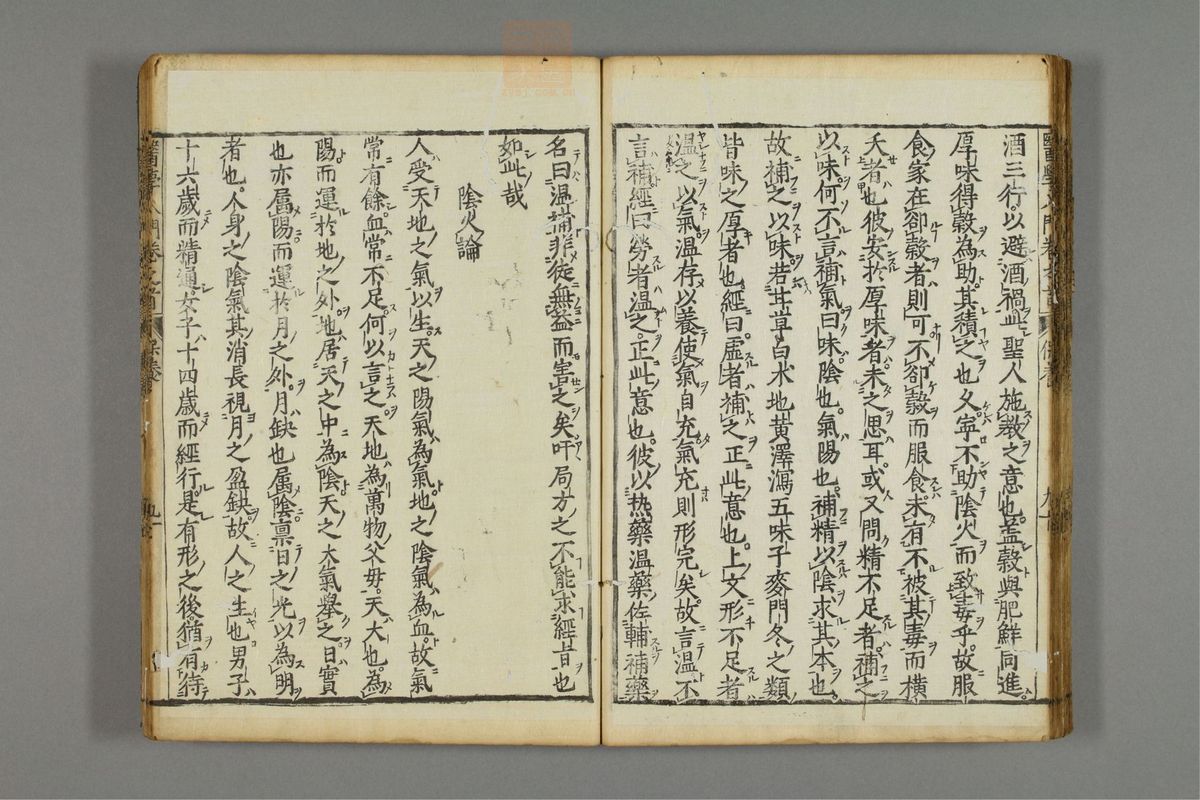 酒三行以避酒禍此聖人施教之意也蓋穀與肥鮮同進
厚味得穀為助其積之也久寧不助陰火而致毒乎故服
食家在卻穀者則可不卻穀而服食未有不被其毒而橫
夭者也彼安於厚味者未之思耳或又問精不足者補之
以味何不言補氣曰味陰也氣陽也補精以陰求其本也
故補之以味若甘草白朮地黃澤瀉五味子麥門冬之類
皆味之厚者也經曰虛者補之正此意也上文形不足者
温之以氣温存以養使氣自充氣充則形完矣故言温不
言補經曰勞者温之正此意也彼以热藥温藥佐輔補藥
名曰温補非徒無益而害之矣吁局方之不能求經旨也
如此哉
陰火論
人受天地之氣以生天之陽氣為氣地之陰氣為血故氣
常有餘血常不足何以言之天地為萬物父母天大也為
陽而運於地之外地居天之中為陰天之大氣舉之日實
也亦屬陽而運於月之外月缺也屬陰禀日之光以為明
者也人身之陰氣其消長視月之盈缺故人之生也男子
十六歲而精通女子十四歲而經行是有形之後猶有待